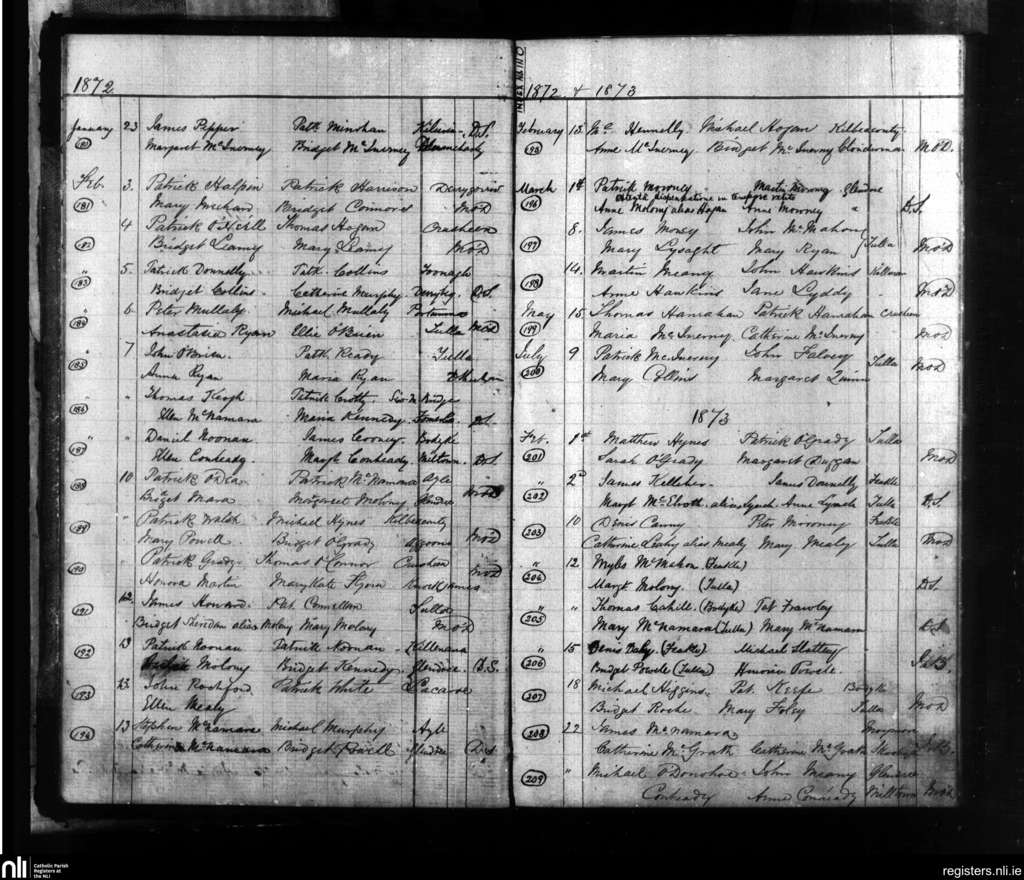 1872
January 23 James Pepper Patk. Minshan D.S.
180 Margaret McInerney Bridget McInerney
Feb. 3. Patrick Halpin Patrick Harrison
181 Mary Meehan Bridget Connors MoD
4 Patrick O'Neill Thomas Hogan Crusheen
182 Bridget Leamy Mary Leamy MoD
" 5. Patrick Donnelly Patk. Collins Foonagh
183 Bridget Collins. Catherine Murphy D.S.
" 6. Peter Mullaly Michael Mullaly Portumna
184 Anastasia Ryan Ellie O'Brien Tulla MoD
" 7 John O'Brien. Patk. Ready Tulla
185 Anna Ryan Maria Ryan
" Thomas Keogh Patrick Crotty. Six M. Bridge
186 Ellen McNamara Maria Kennedy. D.S.
" Daniel Noonan James Cooney. Bodyke
187 Ellen Conheady. Margt. Conheady. Milltown. D.S.
10 Patrick O'Dea Patrick McNamara Ayle
188 Bridget Mara Margaret Molony Glendree MoD
" Patrick Walsh Michael Hynes Kilbeacanty
189 Mary Powell Bridget OGrady MoD
" Patrick Grady Thomas O'Connor Crusheen
190 Honora Martin MaryKate Knockjames MoD
12. James Howard. Pat. Conellan Tulla
191 Bridget Sheridan alias Molony Mary Molony MoD
13 Patrick Noonan Patrick Noonan
192 Molony Bridget Kennedy. Glendree. D.S.
13. John Rochford Patrick White
193 Ellen Mealy
13 Stephen McNamara Michael Murphy Ayle
194 Catherine McNamara Bridget D.S.
INDEX No IN O
1872 & 1873
February 13. Ml. Hennelly Michael Hogan Kilbeacanty
195 Anne McInerney Bridget McInerny MoD.
March 1st Patrick Moroney Martin Moroney Glendree
obtenta dispensatione in
196 Anne Molony alias Hogan Anne Moroney " D.S.
8. James Moxy John McMahon
197 Mary Lysaght Mary Ryan Tulla MoD
14. Martin Meany John Hawkins
198 Anne Hawkins Jane Lyddy MoD
May 15. Thomas Hanrahan Patrick Hanrahan Crusheen
199 Maria McInerny Catherine McInerny MoD
July 9 Patrick McInerny John Falvey
200 Mary Collins Margaret Quinn Tulla MoD
1873
Feb. 1st Matthew Hynes Patrick OGrady Tulla
201 Sarah OGrady Margaret Duggan MoD
" 2nd James Kelleher James Donnelly Feakle
202 Margt McElroth alias Lynch Anne Lynch Tulla D.S.
10 Denis Canny Peter Moroney Feakle
203 Catherine Leahy alias Mealy Mary Mealy Tulla MoD
" 12 Myles McMahon (Feakle)
204 Margt Molony. (Tulla) D.S.
" " Thomas Cahill. (Bodyke) Pat Frawley
205 Mary McNamara (Tulla) Mary McNamara D.S.
" 15 Denis Daly (Feakle) Michael Slattery
206 Bridget Powell (Tulla) Honoria Powell
18 Michael Higgins. Pat. Keefe Bodyke
207 Bridget Roche Mary Foley Tulla MoD
208 22 James McNamara
Catherine McGrath Catherine McGrath
209 " Michael O'Donohoe John Meany Glendree
Conheady Anne Conheady Milltown MoD
nli Catholic Parish
Registers at
the NLI
registers.nli.ie